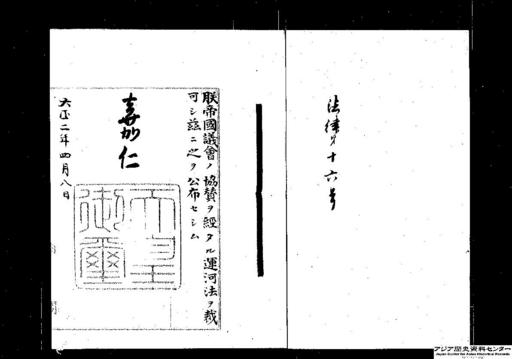 法律第十六号
朕帝國議會ノ協賛ヲ經タル運河法ヲ裁
可シ茲ニ之ヲ公布セシム
嘉仁
天皇御璽
大正二年四月八日
アジア歴史資料センター
Japan Center for Asian Historical Records